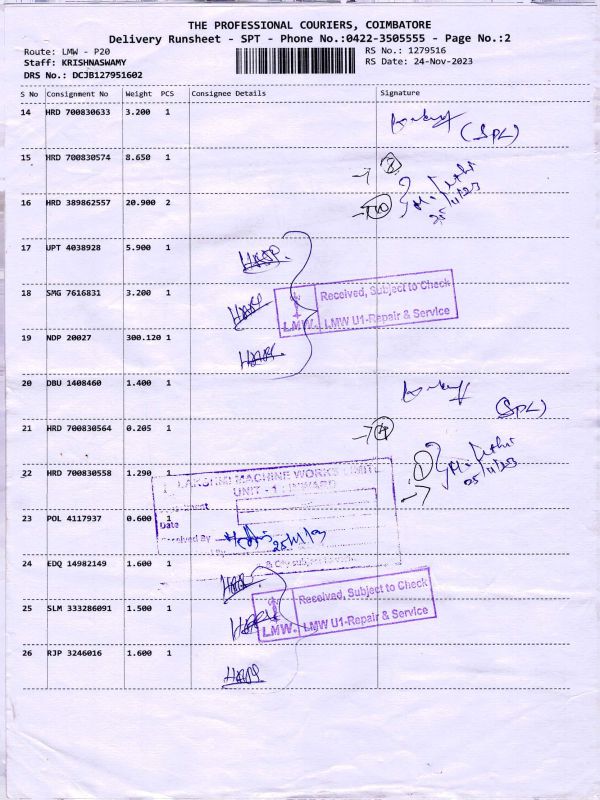 THE PROFESSIONAL COURIERS, COIMBATORE
Delivery Runsheet - SPT - Phone No.:0422-3505555 - Page No.:2
Route: LMW - P20
RS No.: 1279516
Staff: KRISHNASWAMY
RS Date: 24-Nov-2023
DRS No.: DCJB127951602
S No Consignment No Weight PCS Consignee Details Signature
14 HRD 700830633 3.200 1
(SPL)
15 HRD 700830574 8.650 1
16 HRD 389862557 20.900 2
25/11/23
17 UPT 4038928 5.900 1
18 SMG 7616831 3.200 1
Received, Subject to Check
LMW. LMW U1-Repair & Service
19 NDP 20027 300.120 1
20 DBU 1408460 1.400 1
(SPL)
21 HRD 700830564 0.205 1
25/11/23
22 HRD 700830558 1.290 1
LAKSHMI MACHINE WORKS LIMITED
UNIT - 1 INWARD
23 POL 4117937 0.600 1
Date
Received By
24 EDQ 14982149 1.600 1
Received, Subject to Check
25 SLM 333286091 1.500 1
LMW. LMW U1-Repair & Service
26 RJP 3246016 1.600 1